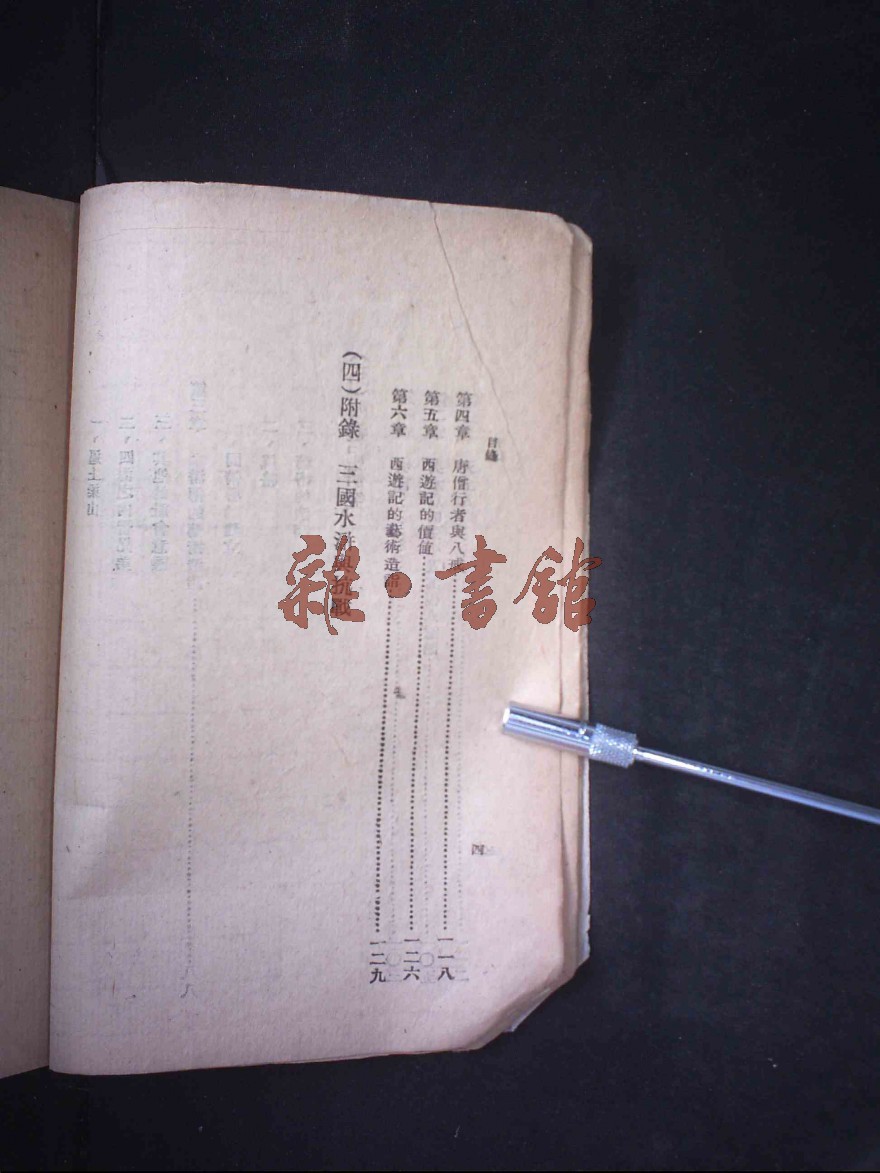 目錄
第四章 唐僧行者與八戒…………一一八
第五章 西遊記的價值…………一二六
第六章 西遊記的藝術造詣…………一二九
(四)附錄 三國水滸與抗戰
四
雜·書館